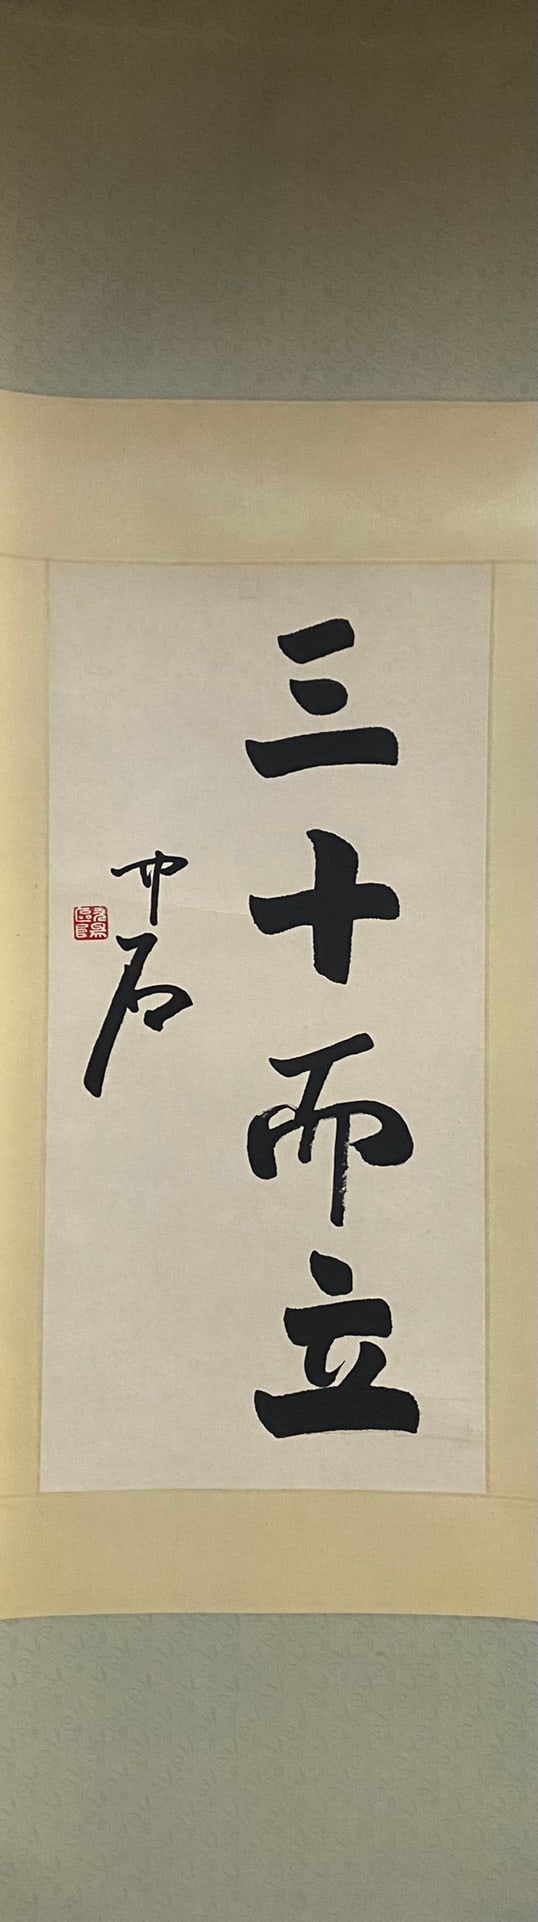 三十而立
中石